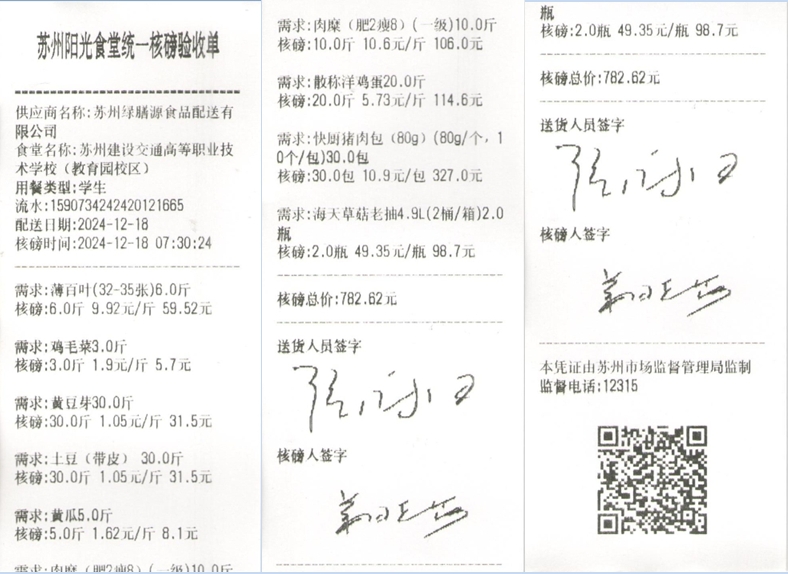 苏州阳光食堂统一核磅验收单
供应商名称:苏州绿膳源食品配送有
限公司
食堂名称:苏州建设交通高等职业技
术学校(教育园校区)
用餐类型:学生
流水:1590734242420121665
配送日期:2024-12-18
核磅时间:2024-12-18 07:30:24
需求:薄百叶(32-35张)6.0斤
核磅:6.0斤 9.92元/斤 59.52元
需求:鸡毛菜3.0斤
核磅:3.0斤 1.9元/斤 5.7元
需求:黄豆芽30.0斤
核磅:30.0斤 1.05元/斤 31.5元
需求:土豆(带皮) 30.0斤
核磅:30.0斤 1.05元/斤 31.5元
需求:黄瓜5.0斤
核磅:5.0斤 1.62元/斤 8.1元
需求:肉糜(肥2瘦8)(一级)10.0斤
需求:肉糜(肥2瘦8)(一级)10.0斤
核磅:10.0斤 10.6元/斤 106.0元
需求:散称洋鸡蛋20.0斤
核磅:20.0斤 5.73元/斤 114.6元
需求:快厨猪肉包(80g)(80g/个,1
0个/包)30.0包
核磅:30.0包 10.9元/包 327.0元
需求:海天草菇老抽4.9L(2桶/箱)2.0
瓶
核磅:2.0瓶 49.35元/瓶 98.7元
核磅总价:782.62元
送货人员签字
核磅人签字
瓶
核磅:2.0瓶 49.35元/瓶 98.7元
核磅总价:782.62元
送货人员签字
核磅人签字
本凭证由苏州市场监督管理局监制
监督电话:12315